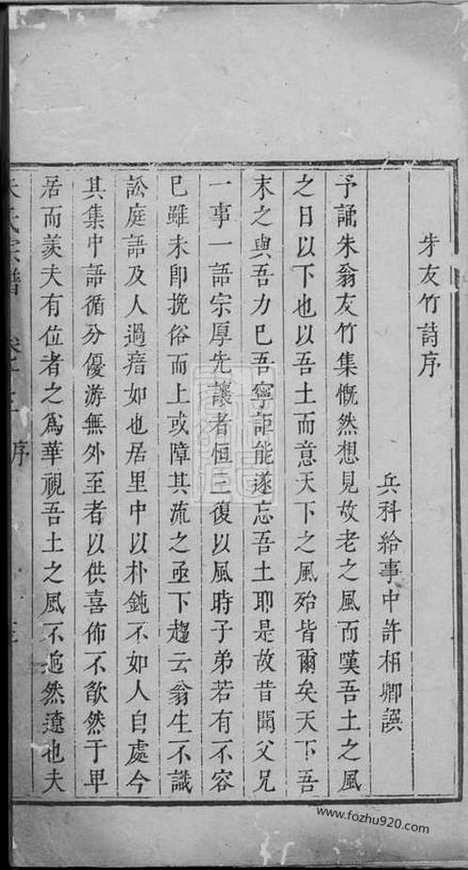 朱友竹詩序
兵科給事中許相卿譔
予誦朱翁友竹集慨然想見故老之風而嘆吾土之風
之日以下也以吾土而意天下之風殆皆爾矣天下吾
末之與吾力已吾寧詎能遂忘吾土耶是故昔聞父兄
一事一語宗厚先讓者恒三復以風時子弟若有不容
已雖未卽挽俗而上或障其流之亟下趨云翁生不識
訟庭語及人過瘖如也居里中以朴鈍不如人自處今
其集中語循分優游無外至者以供喜怖不歆然于畢
居而羨夫有位者之為華視吾土之風不逈然遠也夫
朱氏宗譜 卷 序
www.fozhu920.com